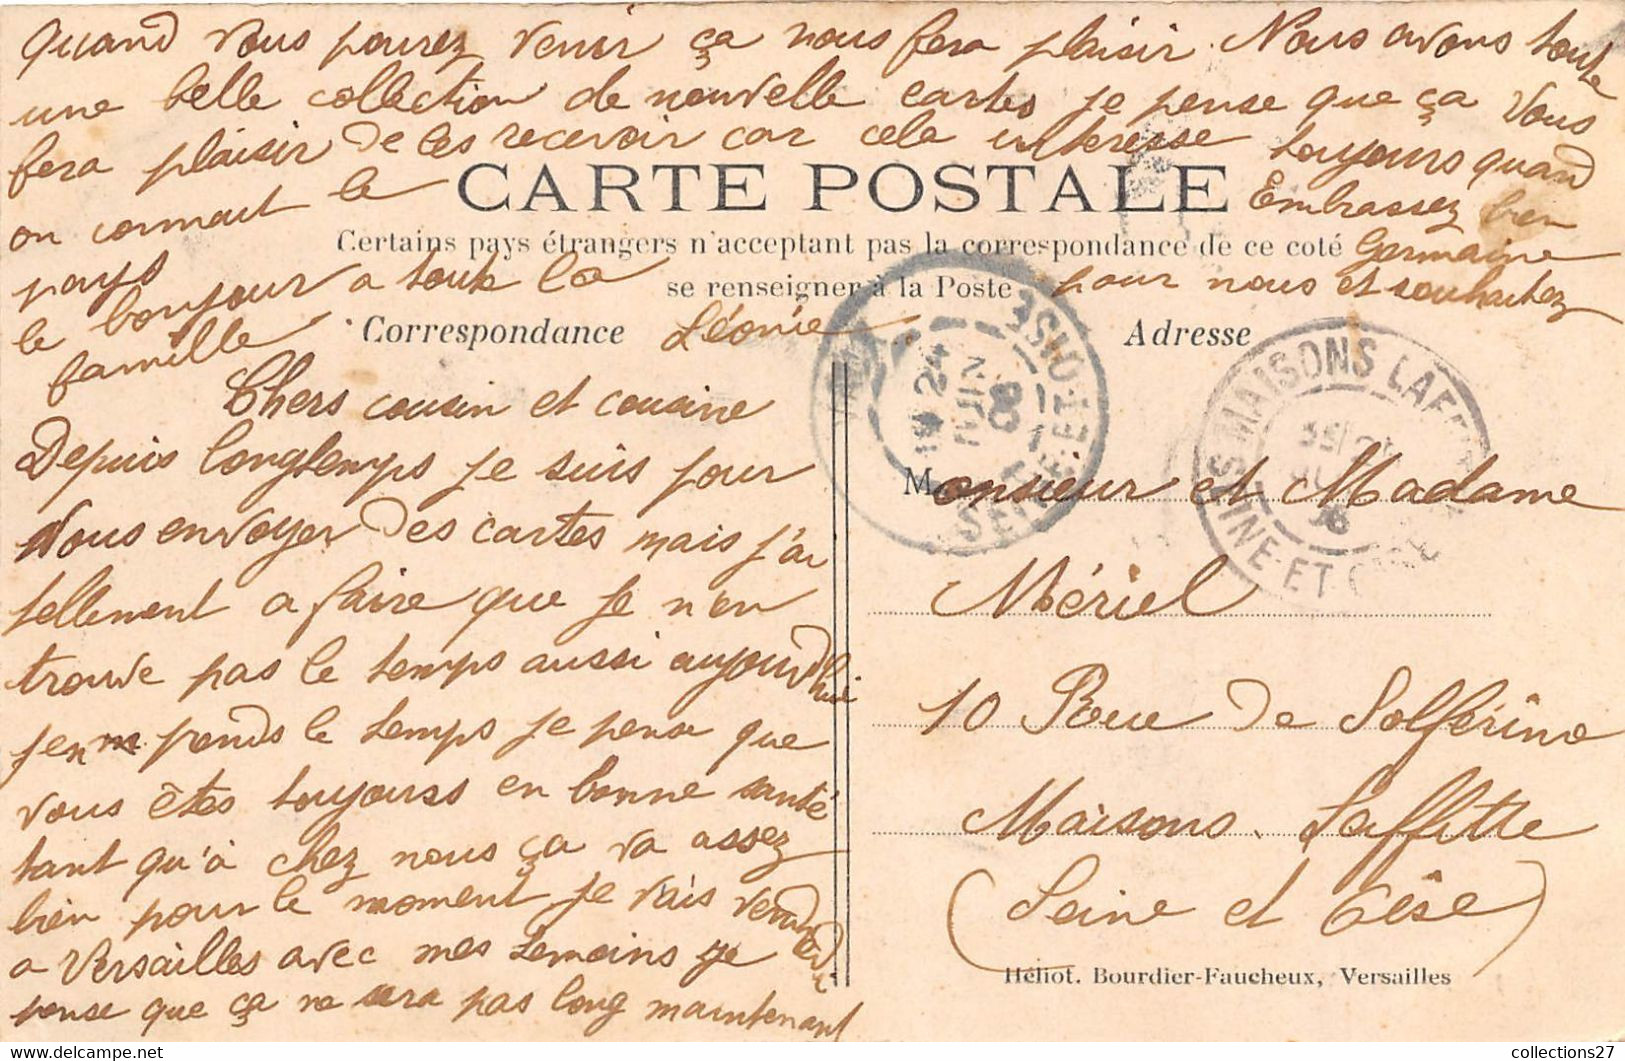 Quand vous pourez venir ça nous fera plaisir. Nous avons toute
une belle collection de nouvelle cartes je pense que ça vous
fera plaisir de les recevoir car cela interesse toujours quand
on connait le
pays
le bonjour a toute la
famille
Léonie
Embrassez bien
Germaine
pour nous et souhaitez
CARTE POSTALE
Certains pays étrangers n'acceptant pas la correspondance de ce coté
se renseigner à la Poste
Correspondance
Adresse
Chers cousin et cousine
Depuis longtemps je suis pour
vous envoyer des cartes mais j'ai
tellement a faire que je n'en
trouve pas le temps aussi aujourd'hui
j'en prends le temps je pense que
vous êtes toujours en bonne santé
tant qu'à chez nous ça va assez
bien pour le moment je vais vendredi
a Versailles avec mes temoins je
pense que ça ne sera pas long maintenant
24
JUIN
08
SEINE-ET-OISE
MAISONS LAFFITTE
SEINE-ET-OISE
Monsieur et Madame
Mériel
10 Rue de Solférino
Maisons. Laffitte
(Seine et Oise)
Héliot. Bourdier-Faucheux, Versailles
collections27